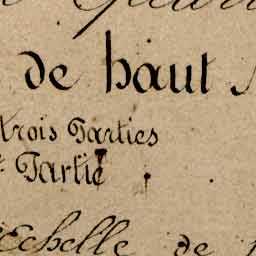 de haut
trois Parties
Partie
Echelle de